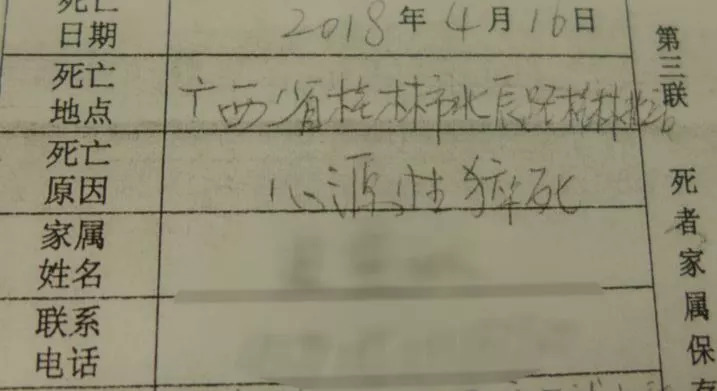 死亡
日期
2018年4月16日
死亡
地点
广西省桂林市北辰路桂林北站
死亡
原因
心源性猝死
家属
姓名
联系
电话
第三联
死者家属保